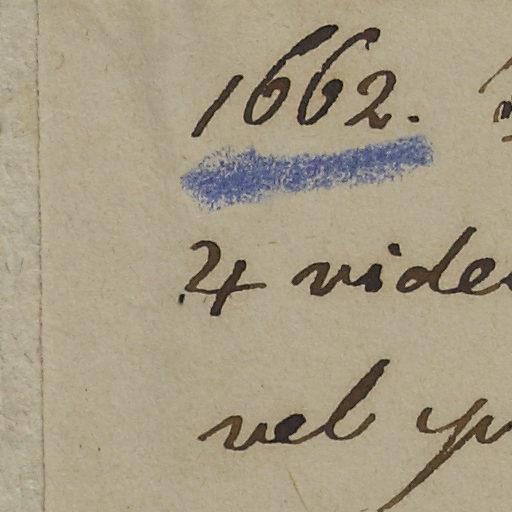 1662.
4 vide
vel